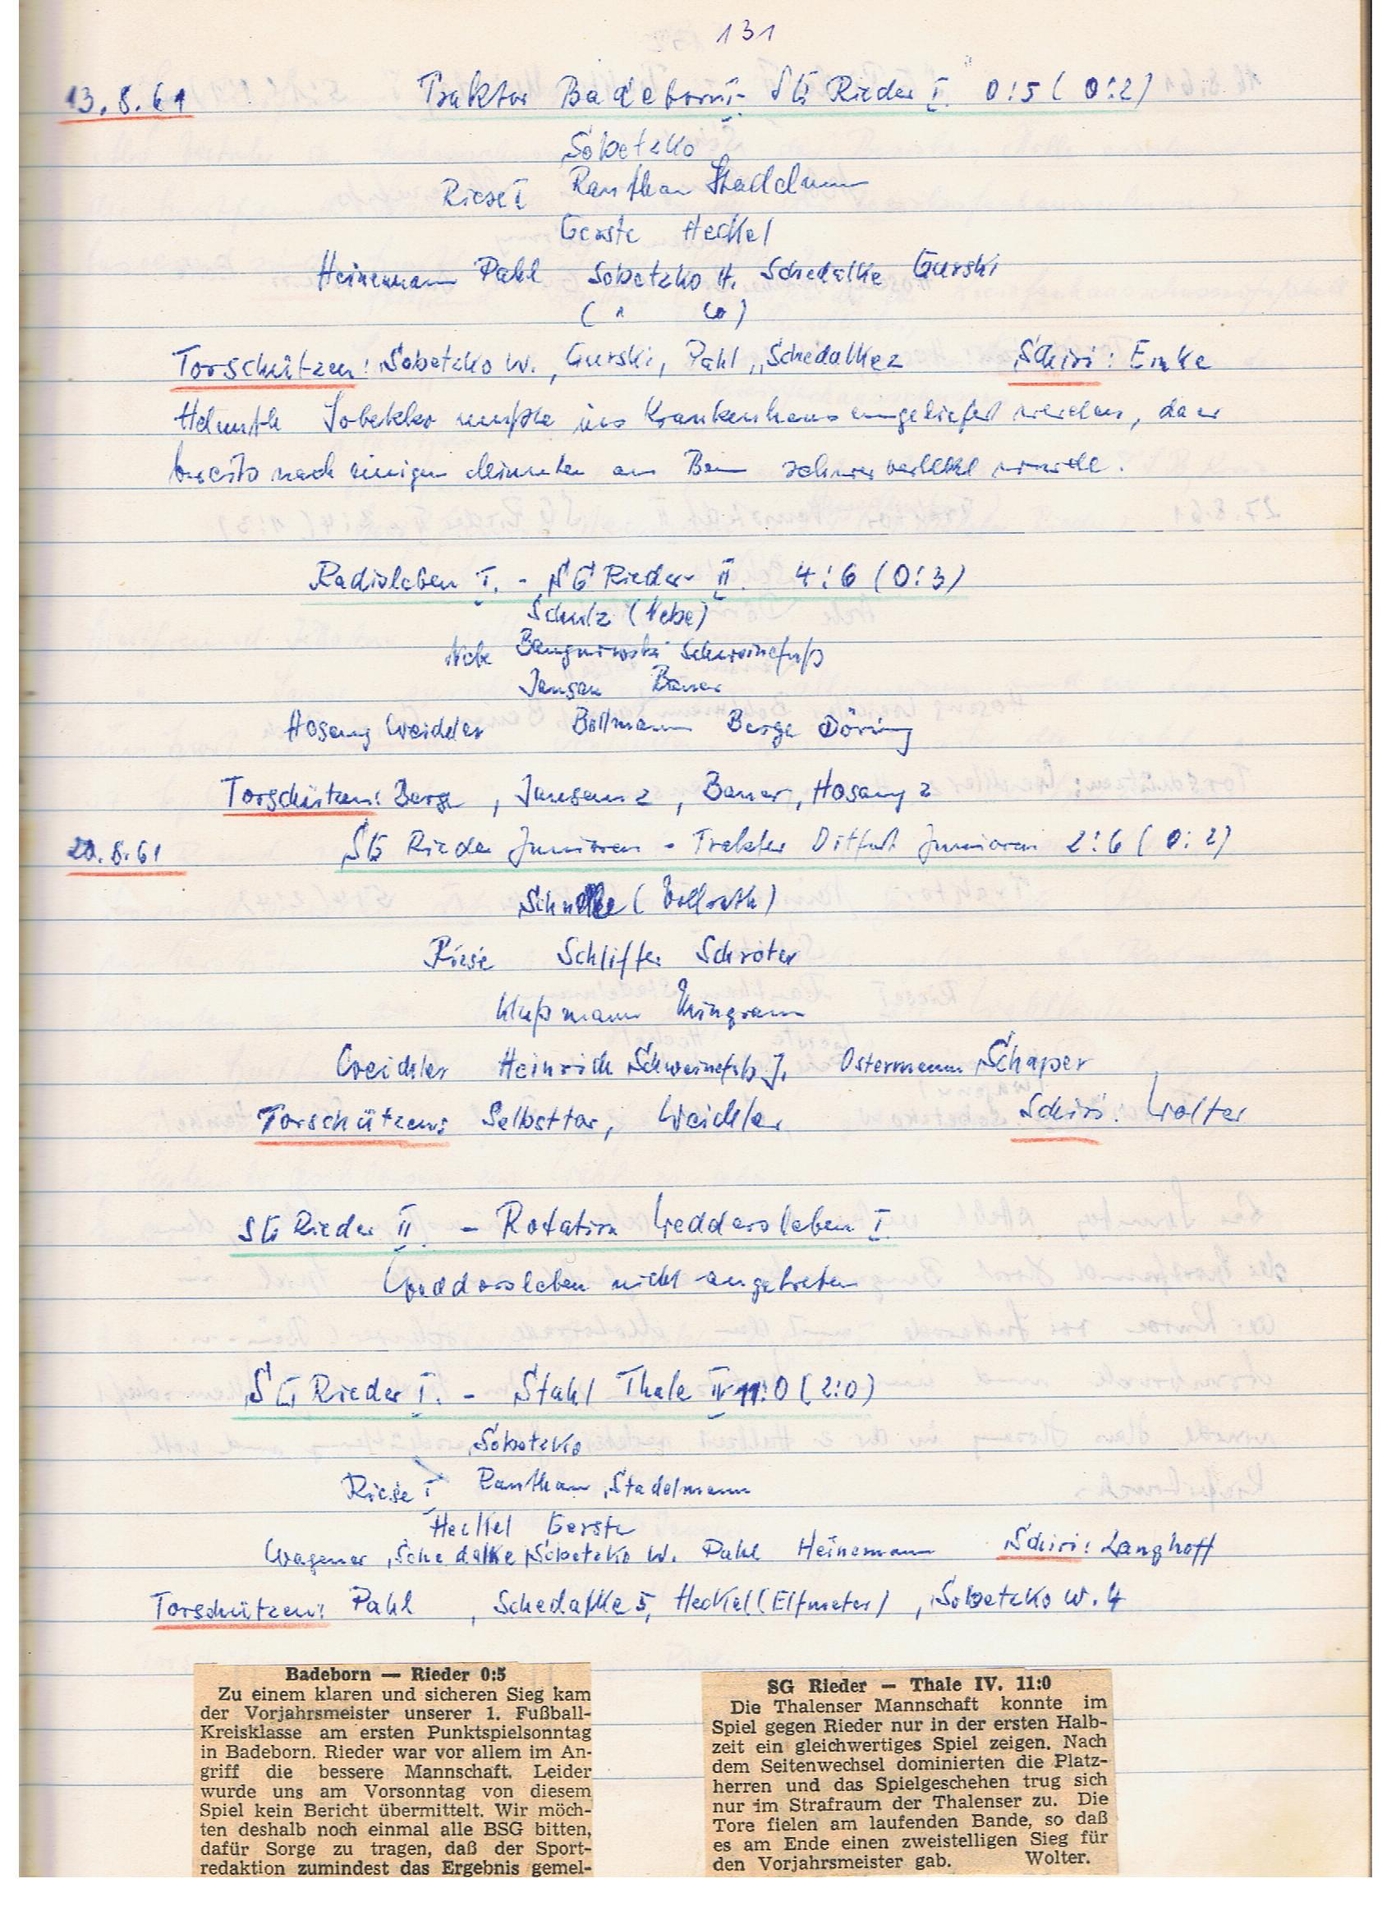 131
13.8.61 Traktor Badeborn I - SG Rieder I. 0:5 (0:2)
Sobetzko
Riese I Ranthan Stadelmann
Gerste Heckel
Heinemann Pahl Sobetzko H. Schedalke Gurski
( " W)
Torschützen: Sobetzko W., Gurski, Pahl, Schedalke 2 Schiri: Emke
Helmuth Sobetzko mußte ins Krankenhaus eingeliefert werden, da er
bereits nach einigen Minuten am Bein schwer verletzt wurde.
Radisleben I. - SG Rieder II. 4:6 (0:3)
Schulz (Nebe)
Nebe Schweinefuß
Jansen Bauer
Hosang Weichler Bollmann Berge Döring
Torschützen: Berge, Jansen 2, Bauer, Hosang 2
20.8.61 SG Rieder Junioren - Traktor Ditfurt Junioren 2:6 (0:2)
(Vollrath)
Riese Schliffke Schröter
Klußmann Mingram
Weichler Heinrich Schweinefuß J. Ostermann Schaper
Torschützen: Selbsttor, Weichler Schiri: Wolter
SG Rieder II. - Rotation Weddersleben I.
Weddersleben nicht angetreten
SG Rieder I. - Stahl Thale IV 11:0 (2:0)
Sobetzko
Riese I Ranthan Stadelmann
Heckel Gerste
Wagener, Schedalke, Sobetzko W. Pahl Heinemann Schiri: Langhoff
Torschützen: Pahl, Schedalke 5, Heckel (Elfmeter), Sobetzko W. 4
Badeborn — Rieder 0:5
Zu einem klaren und sicheren Sieg kam
der Vorjahrsmeister unserer 1. Fußball-
Kreisklasse am ersten Punktspielsonntag
in Badeborn. Rieder war vor allem im An-
griff die bessere Mannschaft. Leider
wurde uns am Vorsonntag von diesem
Spiel kein Bericht übermittelt. Wir möch-
ten deshalb noch einmal alle BSG bitten,
dafür Sorge zu tragen, daß der Sport-
redaktion zumindest das Ergebnis gemel-
SG Rieder — Thale IV. 11:0
Die Thalenser Mannschaft konnte im
Spiel gegen Rieder nur in der ersten Halb-
zeit ein gleichwertiges Spiel zeigen. Nach
dem Seitenwechsel dominierten die Platz-
herren und das Spielgeschehen trug sich
nur im Strafraum der Thalenser zu. Die
Tore fielen am laufenden Bande, so daß
es am Ende einen zweistelligen Sieg für
den Vorjahrsmeister gab. Wolter.